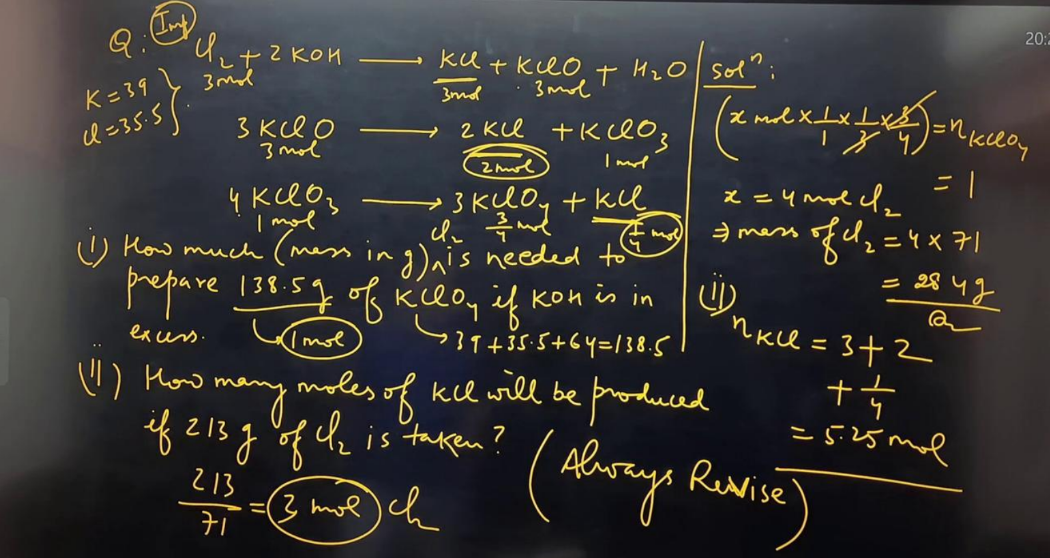 Q. Imp Cl₂ + 2 KOH ⟶ KCl + KClO + H₂O
3 mol 3 mol 3 mol
K = 39
Cl = 35.5
3 KClO ⟶ 2 KCl + KClO₃
3 mol 2 mol 1 mol
4 KClO₃ ⟶ 3 KClO₄ + KCl
1 mol 3/4 mol 1/4 mol
(i) How much (mass in g) Cl₂ is needed to
prepare 138.5 g of KClO₄ if KOH is in
excess. 1 mol → 39 + 35.5 + 64 = 138.5
(ii) How many moles of KCl will be produced
if 213 g of Cl₂ is taken?
213/71 = 3 mol Cl₂
(Always Revise)
20:2
Solⁿ:
(x mol × 1/1 × 1/3 × 3/4) = n KClO₄
= 1
x = 4 mol Cl₂
⇒ mass of Cl₂ = 4 × 71
= 284 g
(ii)
n KCl = 3 + 2
+ 1/4
= 5.25 mol